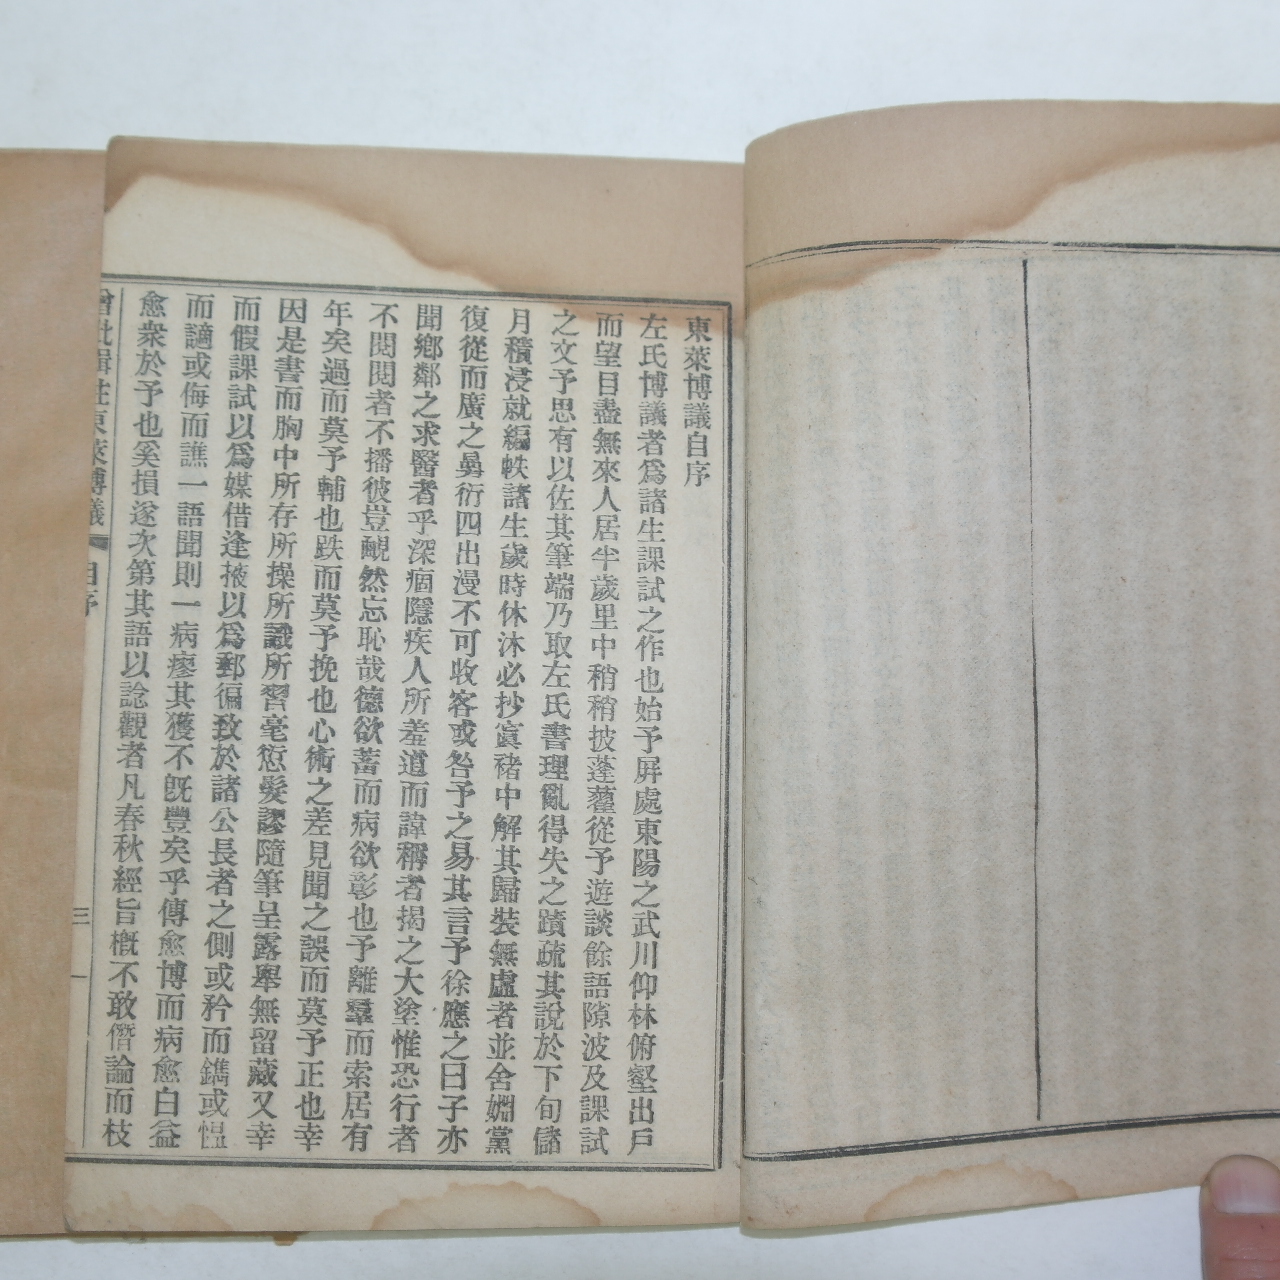 東萊博議自序
左氏博議者爲諸生課試之作也始予屏處東陽之武川仰林俯壑出戶
而望目盡無來人居半歲里中稍稍披蓬藋從予遊談餘語隙波及課試
之文予思有以佐其筆端乃取左氏書理亂得失之蹟疏其說於下旬儲
月積浸就編帙諸生歲時休沐必抄寘褚中解其歸裝無虛者並舍姻黨
復從而廣之曼衍四出漫不可收客或咎予之易其言予徐應之曰子亦
聞鄉鄰之求醫者乎深痼隱疾人所羞道而諱稱者揭之大塗惟恐行者
不閱閱者不播彼豈靦然忘恥哉德欲蓄而病欲彰也予離羣而索居有
年矣過而莫予輔也跌而莫予挽也心術之差見聞之誤而莫予正也幸
因是書而胸中所存所操所識所習毫愆髮謬隨筆呈露舉無留藏又幸
而假課試以爲媒借逢掖以爲郵徧致於諸公長者之側或矜而鐫或慍
而讁或侮而譙一語聞則一病瘳其獲不旣豐矣乎傳愈博而病愈白益
愈衆於予也奚損遂次第其語以諗觀者凡春秋經旨槪不敢僭論而枝
增批輯註東萊博議 自序 三 一